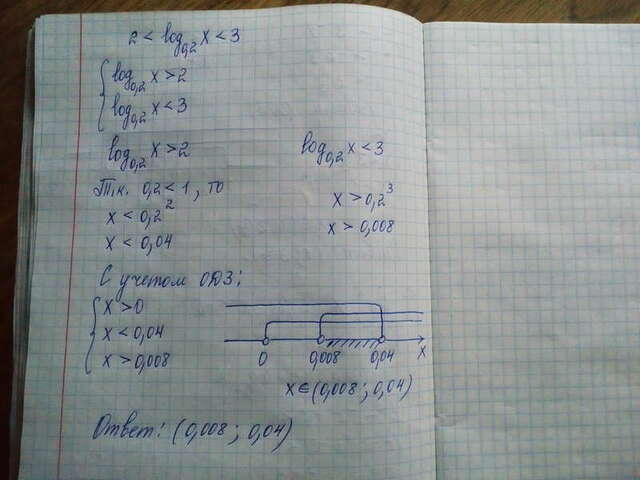 2 < log₀,₂ x < 3
log₀,₂ x > 2
log₀,₂ x < 3
log₀,₂ x > 2
Т.к. 0,2 < 1, то
x < 0,2²
x < 0,04
log₀,₂ x < 3
x > 0,2³
x > 0,008
С учетом ОДЗ:
x > 0
x < 0,04
x > 0,008
0 0,008 0,04 x
x ∈ (0,008 ; 0,04)
Ответ: (0,008 ; 0,04)